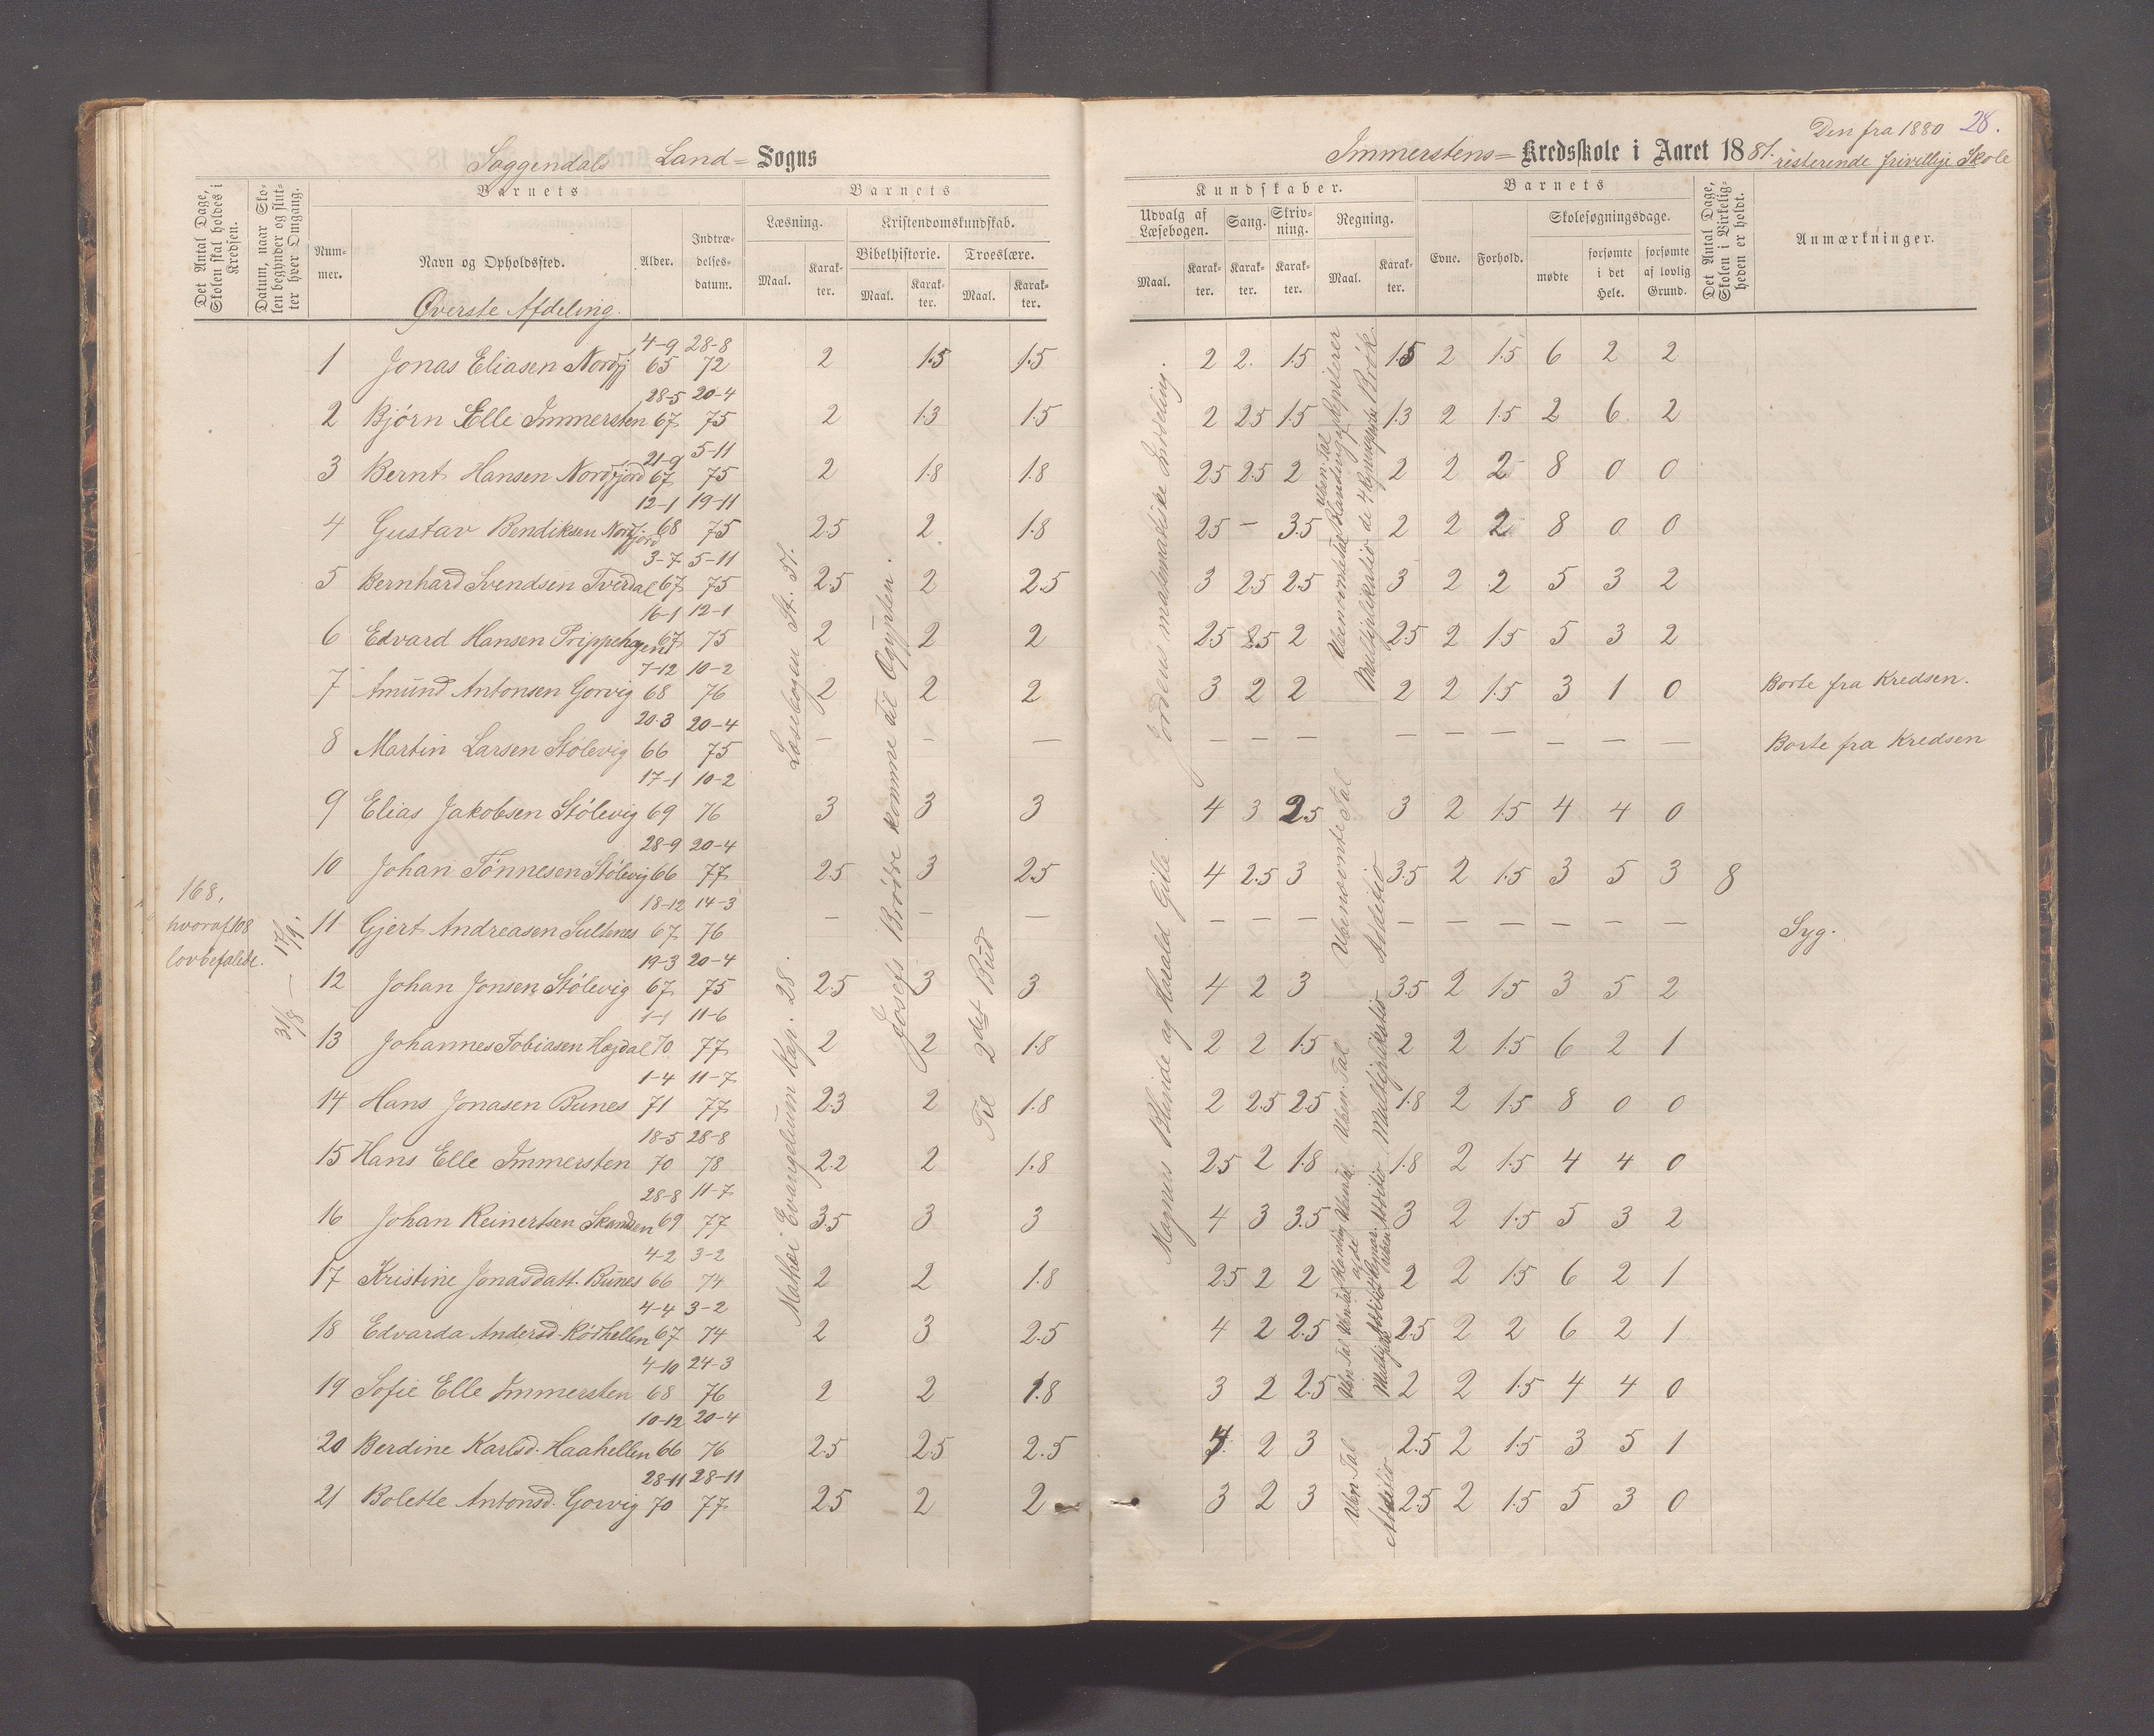 Soggendals Land= Sogns
Det Antal Dage, Skolen skal holdes i Kredsen.
Datum, naar Skolen begynder og slutter hver Omgang.
Barnets
Barnets
Nummer.
Navn og Opholdssted.
Alder.
Indtrædelsesdatum.
Læsning.
Kristendomskundskab.
Bibelhistorie. Troeslære.
Maal. Karakter. Maal. Karakter. Maal. Karakter.
Øverste Afdeling.
1 Jonas Eliasen Nordfj 4-9 65 28-8 72 2 1.5 1.5
2 Bjørn Elle Immersten 28-5 67 20-4 75 2 1.3 1.5
3 Bernt Hansen Nordfjord 21-9 67 5-11 75 2 1.8 1.8
4 Gustav Bendiksen Nordfjord 12-1 68 19-11 75 2.5 2 1.8
5 Bernhard Svendsen Tverdal 3-7 67 5-11 75 2.5 2 2.5
6 Edvard Hansen 16-1 67 12-1 75 2 2 2
7 Amund Antonsen Gorvig 7-12 68 10-2 76 2 2 2
8 Martin Larsen Stølevig 20-3 66 20-4 75 — — —
9 Elias Jakobsen Stølevig 17-1 69 10-2 76 3 3 3
10 Johan Tønnesen Stølevig 28-9 66 20-4 77 2.5 3 2.5
11 Gjert Andreasen Sultenes 18-12 67 14-3 76 — — —
12 Johan Jonsen Stølevig 19-3 67 20-4 75 2.5 3 3
13 Johannes Tobiasen Højdal 1-1 70 11-6 77 2 2 1.8
14 Hans Jonasen Bunes 1-4 71 11-7 77 2.3 2 1.8
15 Hans Elle Immersten 18-5 70 28-8 78 2.2 2 1.8
16 Johan Reinertsen 28-8 69 11-7 77 3.5 3 3
17 Kristine Jonasdatt. Bunes 4-2 66 3-2 74 2 2 1.8
18 Edvarda Andersd. Rødhellen 4-4 67 3-2 74 2 3 2.5
19 Sofie Elle Immersten 4-10 68 24-3 76 2 2 1.8
20 Berdine Karlsd. Haahellen 10-12 66 20-4 76 2.5 2.5 2.5
21 Bolette Antonsd. Gorvig 28-11 70 28-11 77 2.5 2 2
168,
hvoraf 108
lovbefalede.
31/8 — 17/9.
Mathæi Evangelium Kap. 28. Læsebogen
Josefs Brødre komme til Ægypten.
Til 2det Bud
Immerstens= Kredsskole i Aaret 1881.
Den fra 1880 28.
resterende frivillige Skole
Kundskaber.
Barnets
Udvalg af Læsebogen.
Sang. Skrivning. Regning.
Maal. Karakter. Karakter. Karakter. Maal. Karakter.
Evne. Forhold.
Skolesøgningsdage.
mødte
forsømte i det Hele.
forsømte af lovlig Grund.
Det Antal Dage, Skolen i Virkeligheden er holdt.
Anmærkninger.
2 2. 1.5 1.5 2 1.5 6 2 2
2 2.5 1.5 1.3 2 1.5 2 6 2
2.5 2.5 2 2 2 2 8 0 0
2.5 — 3.5 2 2 2 8 0 0
3 2.5 2.5 3 2 2 5 3 2
2.5 2.5 2 2.5 2 1.5 5 3 2
3 2 2 2 2 1.5 3 1 0 Borte fra Kredsen.
— — — — — — — — — Borte fra Kredsen
4 3 2.5 3 2 1.5 4 4 0
4 2.5 3 3.5 2 1.5 3 5 3 8
— — — — — — — — — Syg.
4 2 3 3.5 2 1.5 3 5 2
2 2 1.5 2 2 1.5 6 2 1
2 2.5 2.5 1.8 2 1.5 8 0 0
2.5 2 1.8 1.8 2 1.5 4 4 0
4 3 3.5 3 2 1.5 5 3 2
2.5 2 2 2 2 1.5 6 2 1
4 2 2.5 2.5 2 2 6 2 1
3 2 2.5 2 2 1.5 4 4 0
2 3 2.5 2 1.5 3 5 1
3 2 3 2.5 2 1.5 5 3 0
Magnus Blinde og Harald Gille. Jordens matematiske Inddeling.
Ubenævnte Tal
Addition
Ubn. Tal
Multiplikation
Ubn. Tal
Addition